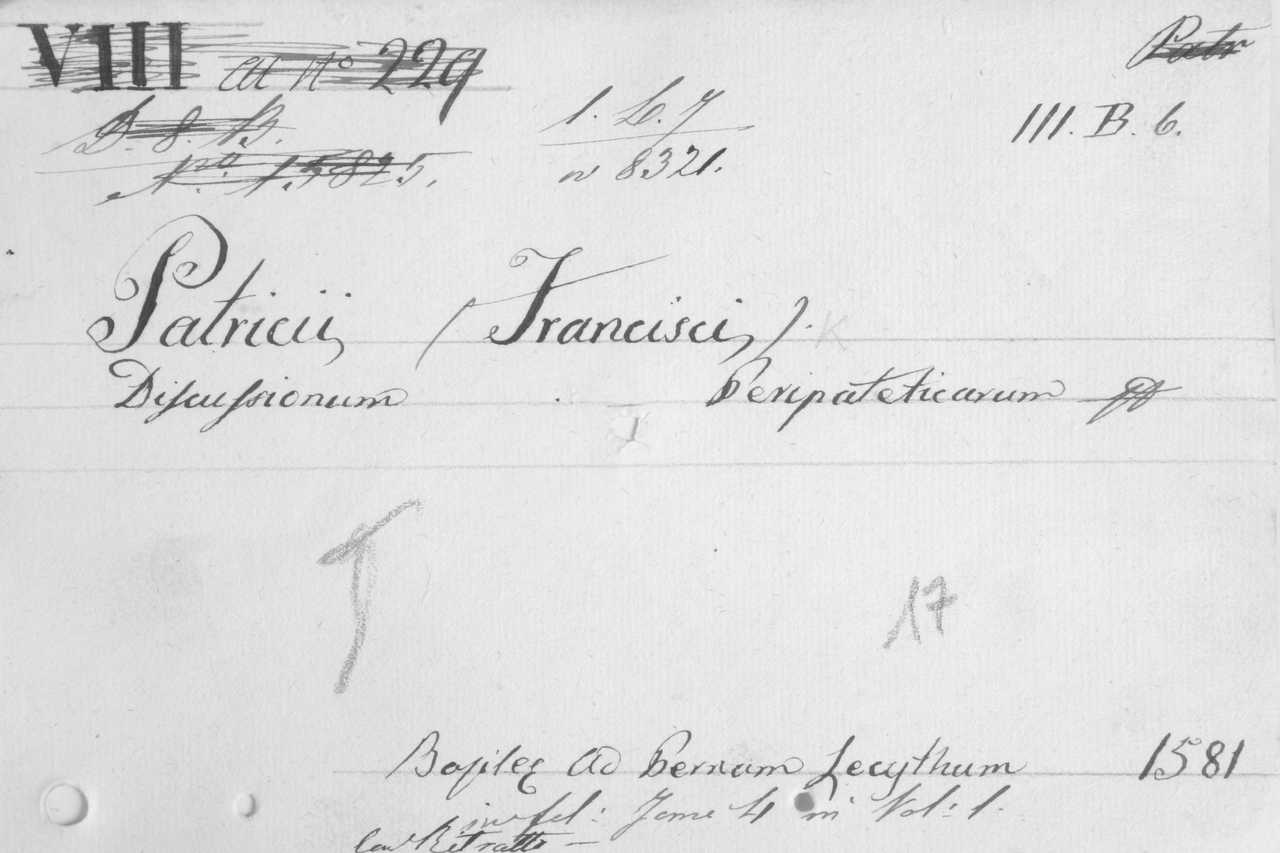 VIII al No 229
Patr
D. 8. B.
No. 15825.
1. L. 7
n 8321.
III. B. 6.
Patricii, (Francisci,). K
Discussionum Peripateticarum
1
17
Basileę Ad Pernam Lecythum 1581
in fol: Tome 4 in Vol: 1.
con Ritratto